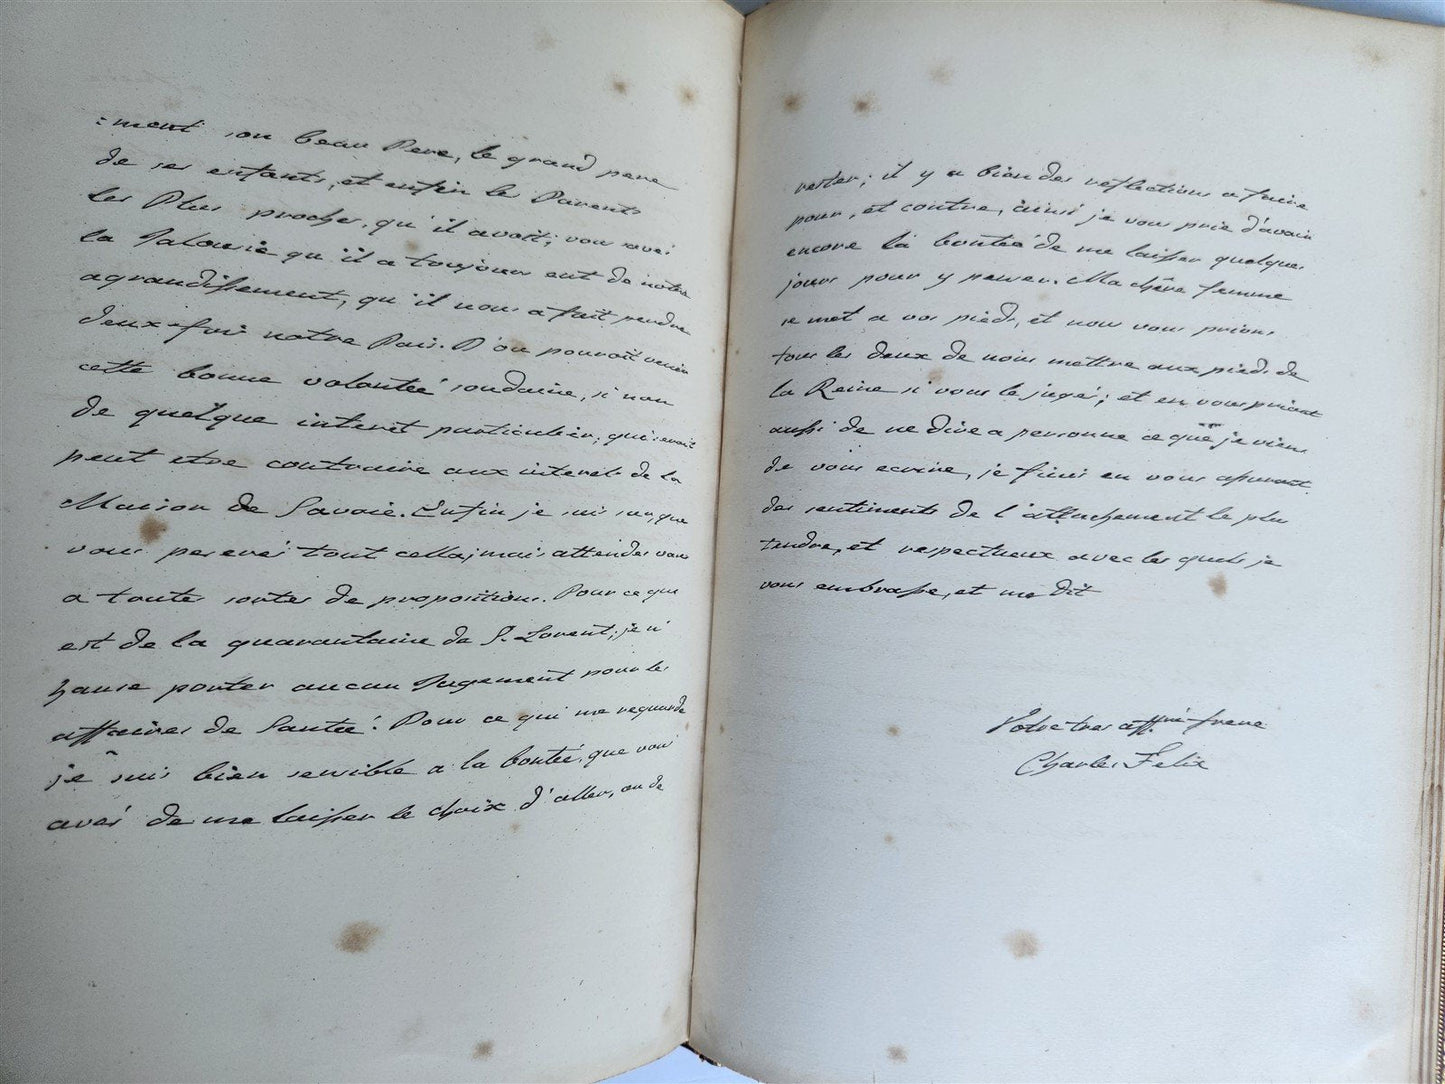 :ment son beau Pere, le grand pere
de ses enfants, et enfin les Parents
les Plus proches, qu'il avoit; vous savés
la Jalousie qu'il a toujours eut de notre
agrandissement, qu'il nous a fait perdre
deux fois notre Pais. D'ou pourroit venir
cette bonne volontée soudaine, si non
de quelque interêt particulier, qui seroit
peut etre contraire aux interets de la
Maison de Savoie. Enfin je suis sur, que
vous peserés tout cella, mais attendés vous
a toutes sortes de propositions. Pour ce que
est de la quarantaine de S. Lorent, je n'
hause porter aucun Jugement pour les
affaires de Santée! Pour ce qui me regarde
je suis bien sensible a la bontée, que vous
avés de me laisser le choix d'aller, ou de
rester; il y a bien des reflections a faire
pour, et contre, ainsi je vous prie d'avoir
encore la bontée de me laisser quelques
jours pour y penser. Ma chère femme
se met a vos pieds, et nous vous prions
tous les deux de nous mettre aux pieds de
la Reine si vous le jugés; et en vous priant
aussi de ne dire a personne ce que je viens
de vous ecrire, je finis en vous assurant
des sentiments de l'attachement le plus
tendre, et respectueux avec les quels je
vous embrasse, et me dit
Votre tres affné frere
Charles Felix